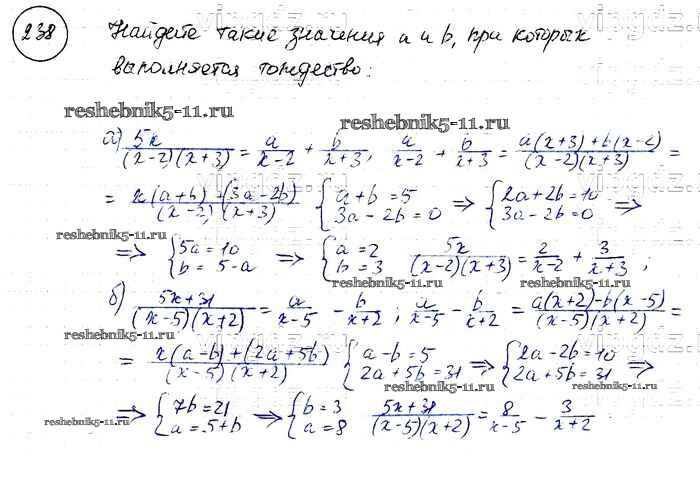 238 Найдете такие значения a и b, при которых
выполняется тождество:
reshebnik5-11.ru reshebnik5-11.ru
а) 5x/((x-2)(x+3)) = a/(x-2) + b/(x+3), a/(x-2) + b/(x+3) = (a(x+3)+b(x-2))/((x-2)(x+3)) =
= (x(a+b)+(3a-2b))/((x-2)(x+3)) { a+b=5 3a-2b=0 => { 2a+2b=10 3a-2b=0 =>
reshebnik5-11.ru
=> { 5a=10 b=5-a => { a=2 b=3 5x/((x-2)(x+3)) = 2/(x-2) + 3/(x+3);
reshebnik5-11.ru
б) (5x+31)/((x-5)(x+2)) = a/(x-5) - b/(x+2), a/(x-5) - b/(x+2) = (a(x+2)-b(x-5))/((x-5)(x+2)) =
reshebnik5-11.ru
= (x(a-b)+(2a+5b))/((x-5)(x+2)) { a-b=5 2a+5b=31 => { 2a-2b=10 2a+5b=31 =>
=> { 7b=21 a=5+b => { b=3 a=8 (5x+31)/((x-5)(x+2)) = 8/(x-5) - 3/(x+2)
reshebnik5-11.ru reshebnik5-11.ru